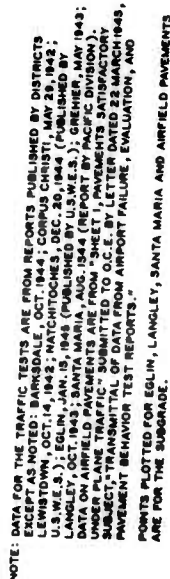 NOTE: DATA FOR THE TRAFFIC TESTS ARE FROM REPORTS PUBLISHED BY DISTRICTS
EXCEPT AS NOTED: BARKSDALE, OCT. 1944; CORPUS CHRISTI, MAY 29, 1942;
LEWISTOWN, OCT. 14, 1942; NATCHITOCHES, DEC. 20, 1944 (PUBLISHED BY
U.S.W.E.S.); EGLIN, JAN. 15, 1945 (PUBLISHED BY U.S.W.E.S.); GRENIER, MAY 1943;
LANGLEY, OCT. 1943; SANTA MARIA, AUG. 1944 (REPORT BY PACIFIC DIVISION).
DATA ON AIRFIELD PAVEMENTS ARE FROM "SHEET I, PAVEMENTS SATISFACTORY
UNDER PLANE TRAFFIC" SUBMITTED TO O.C.E. BY LETTER DATED 22 MARCH 1945,
SUBJECT, "TRANSMITTAL OF DATA FROM AIRPORT FAILURE, EVALUATION, AND
PAVEMENT BEHAVIOR TEST REPORTS."
POINTS PLOTTED FOR EGLIN, LANGLEY, SANTA MARIA AND AIRFIELD PAVEMENTS
ARE FOR THE SUBGRADE.